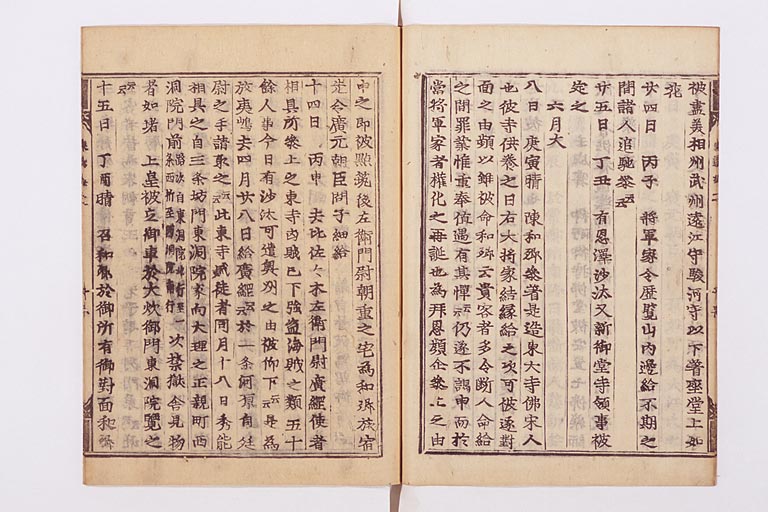 彼盡美相州武州遠江守駿河守以下著座堂上如
花
廿四日 丙子 將軍家令歴覽山内邊給不期之
間諸人追馳參云云
廿五日 丁丑 有恩澤沙汰又新御堂寺領事被
定之
六月大
八日 庚寅晴 陳和卿參著是造東大寺佛宋人
也彼寺供養之日右大將家結縁給之次可被遂對
面之由頻以雖被命和卿云貴客者多令斷人命給
之間罪業惟重奉値遇有其憚云云仍遂不謁申而於
當將軍家者權化之再誕也為拜恩顔企參上之由
申之即被點筑後左衛門尉朝重之宅為和卿旅宿
先令廣元朝臣問子細給
十四日 丙申 去比佐々木左衛門尉廣經使者
相具所參上之東寺凶賊已下強盗海賊之類五十
餘人事今日有沙汰可遣奥州之由被仰下云云是為
放夷嶋去四月廿八日給廣經云云於一條河原自廷
尉之手請取之云云此東寺賊徒者同月十八日秀能
相具之自三条坊門東洞院家向大理之正親町西
洞院門前路次自東洞院北行至 次禁獄舎見物
者如堵 上皇被立御車於大炊御門東洞院覽之
云云
十五日 丁酉晴 召和卿於御所有御對面和卿